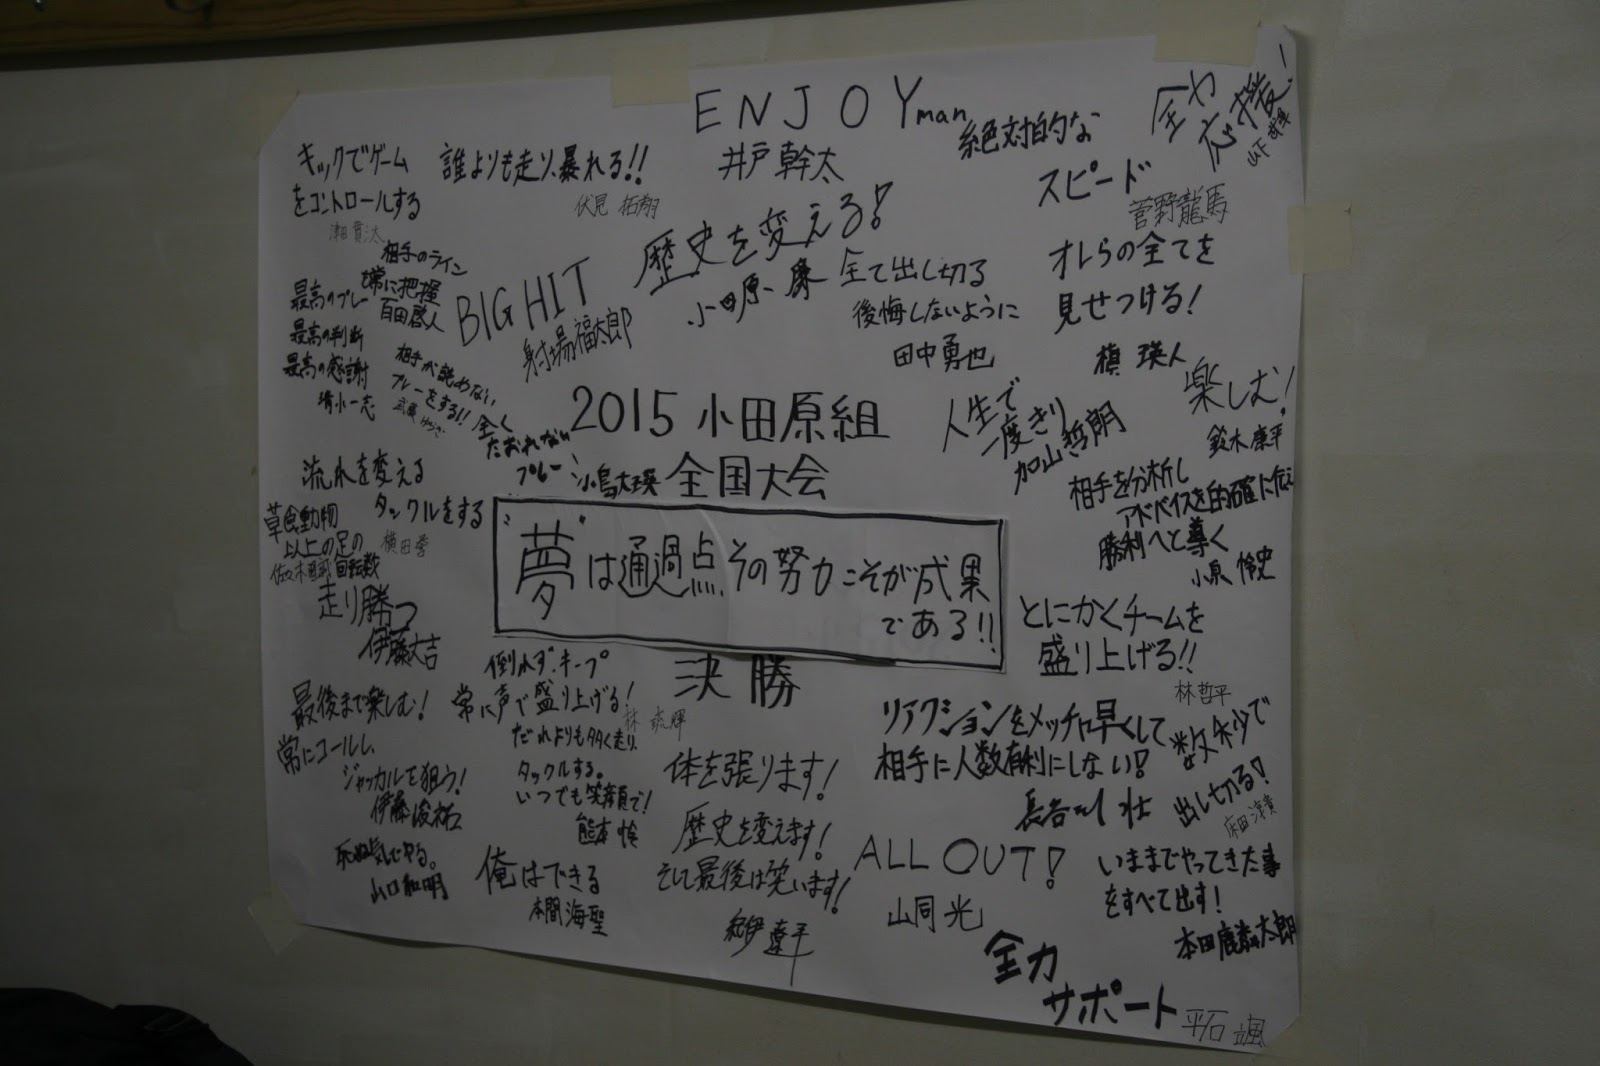 ENJOYman
井戸幹太
絶対的な
スピード
菅野龍馬
全力
応援!
キックでゲーム
をコントロールする
誰よりも走り、暴れる!!
伏見 拓翔
歴史を変える!
小田原 康
相手のライン
常に把握
百田啓人
最高のプレー
最高の判断
最高の感謝
BIG HIT
射場福太郎
全て出し切る
後悔しないように
田中勇也
オレらの全てを
見せつける!
槇 瑛人
相手が読めない
プレーをする!!
全く
たおれない
プレー!
楽しむ!
鈴木康平
2015 小田原組
全国大会
人生で
一度きり
加山哲朗
流れを変える
タックルをする
相手を分析し
アドバイスを的確に伝え
勝利へと導く
小泉 怜史
草食動物
以上の足の
回転数
走り勝つ
伊藤大吉
“夢”は通過点その努力こそが成果
である!!
決勝
とにかくチームを
盛り上げる!!
林哲平
倒れず、キープ
常に声で盛り上げる!
最後まで楽しむ!
常にコールし、
ジャッカルを狙う!
伊藤俊祐
だれよりも多く走り、
タックルする。
いつでも笑顔で!
熊本 怜
体を張ります!
歴史を変えます!
そして最後は笑います!
紀伊遼平
リアクションをメッチャ早くして
相手に人数有利にしない!
長谷川 壮
数秒で
出し切る!
床田淳貴
死ぬ気でやる。
山口和明
俺はできる
本間海聖
ALL OUT!
山同光
いままでやってきた事
をすべて出す!
全力
サポート
平石 颯